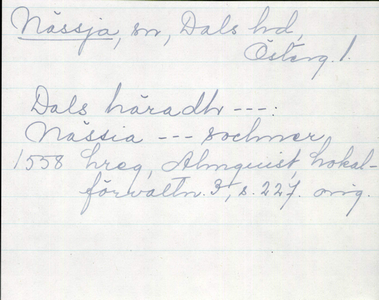 Nässja, sn, Dals hd,
Österg. l.
Dals häradh ---:
Nässia --- sochner
1558 hreg, Almquist, Lokal-
förvaltn. 3, s. 227. orig.